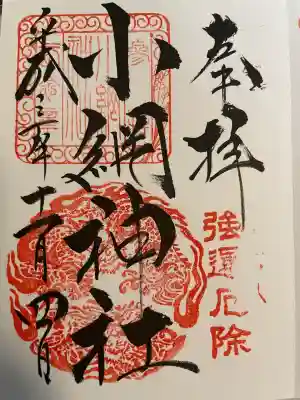 奉拝
強運厄除
小網神社
平成三十年十一月四日